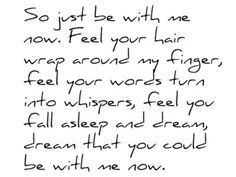 So just be with me
now. Feel your hair
wrap around my finger,
feel your words turn
into whispers, feel you
fall asleep and dream,
dream that you could
be with me now.